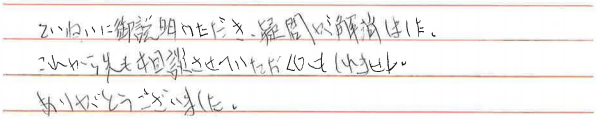 ていねいに御説明いただき、疑問が解消しました。
これから先も相談させていただくかもしれません。
ありがとうございました。